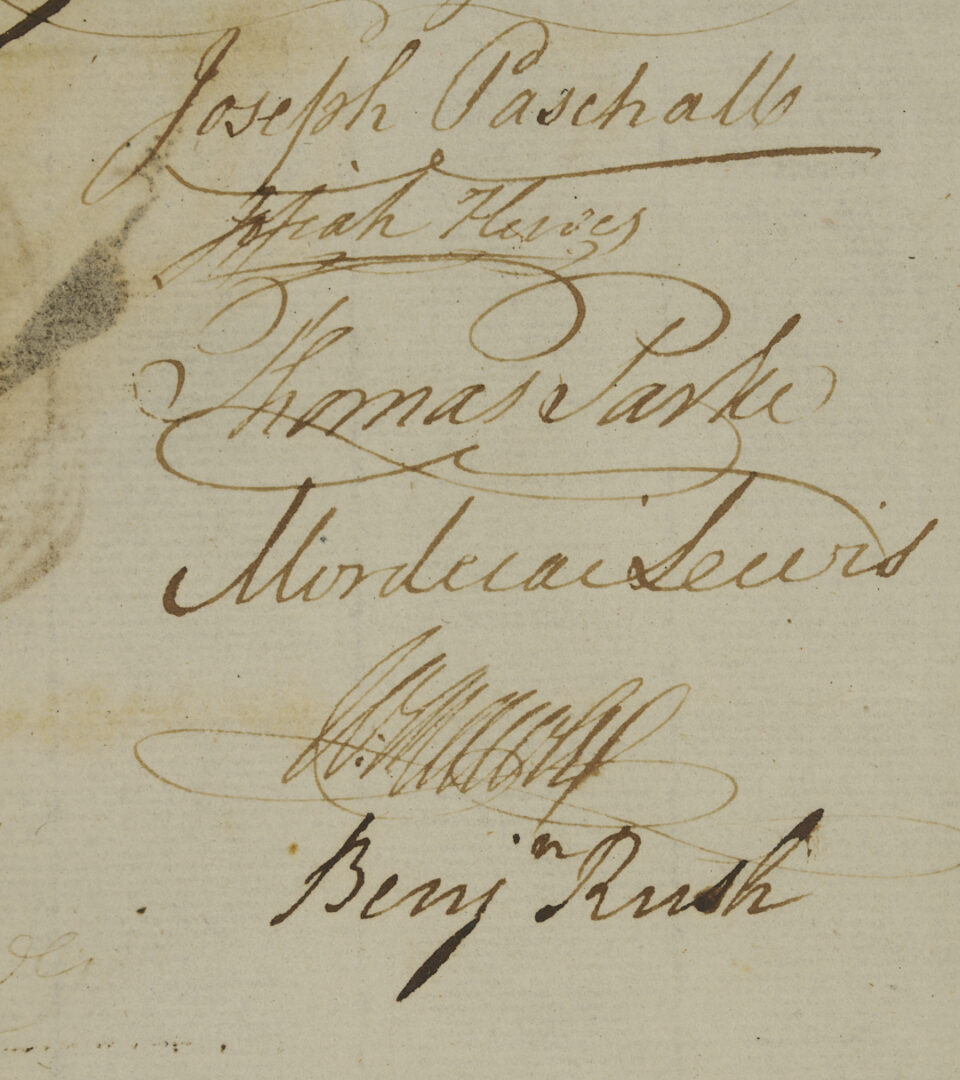 Joseph Paschall
Josiah Hewes
Thomas Parke
Mordecai Lewis
Benjn Rush